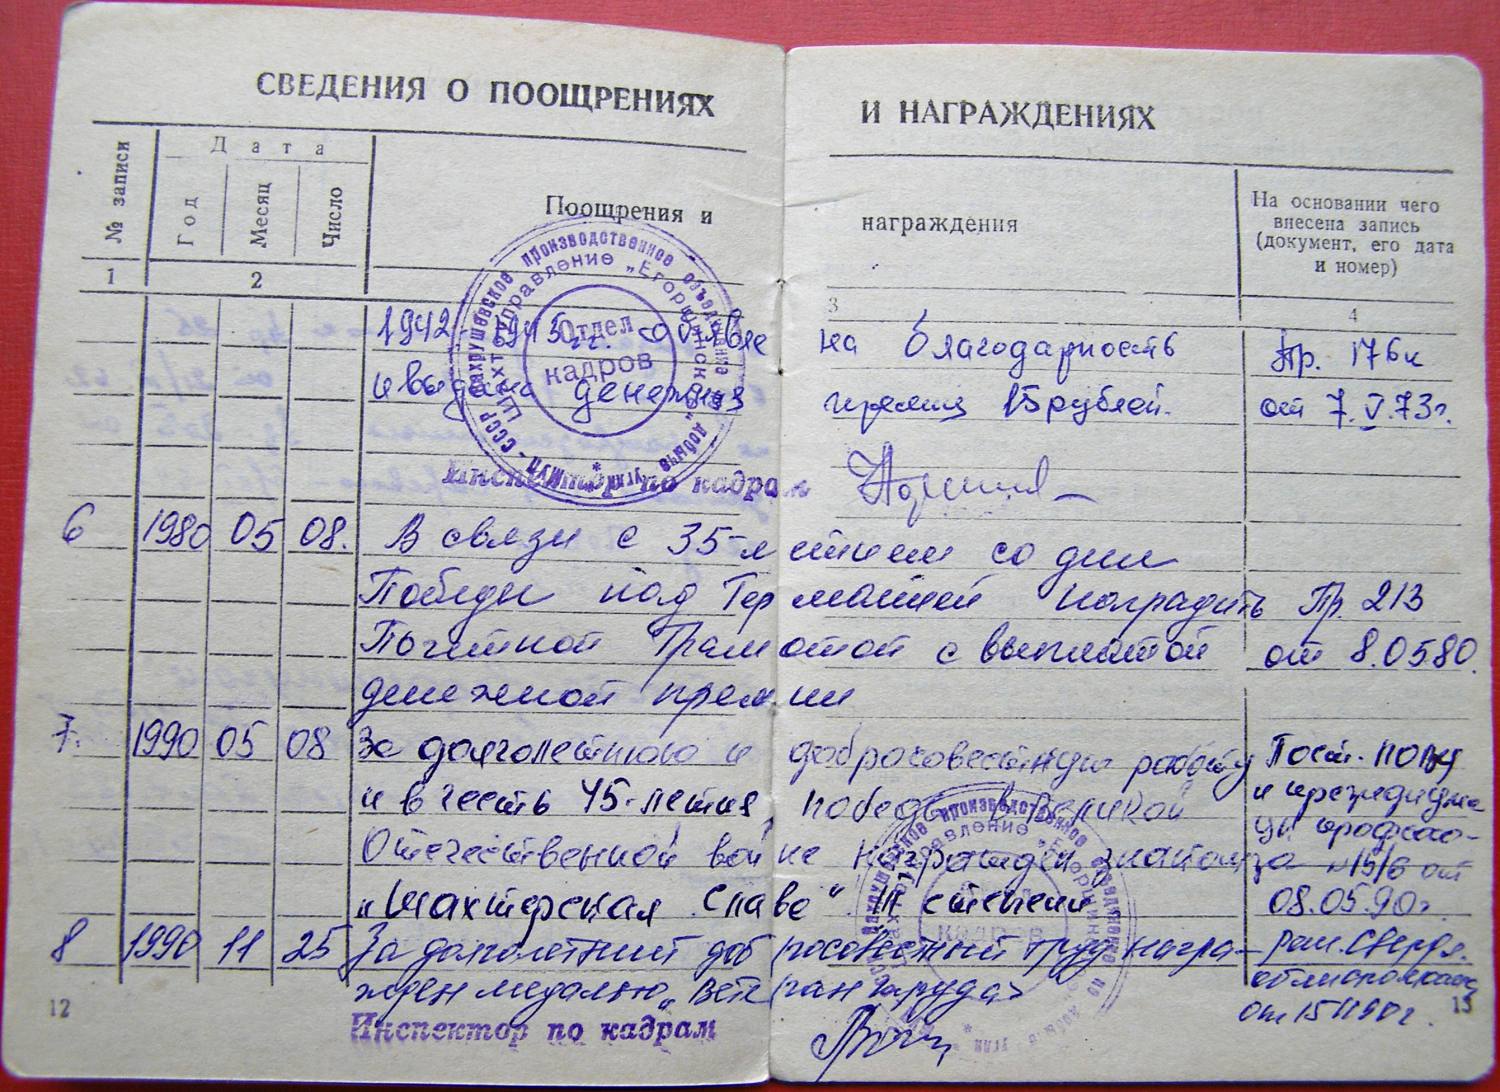 СВЕДЕНИЯ О ПООЩРЕНИЯХ И НАГРАЖДЕНИЯХ
№ записи
Дата
Год
Месяц
Число
Поощрения и награждения
На основании чего
внесена запись
(документ, его дата
и номер)
1 2 3 4
1942 1945 гг. объявлена благодарность Пр. 176к
и выдана денежная премия 15 рублей. от 7.V.73г.
Инспектор по кадрам
6 1980 05 08. В связи с 35-летием со дня
Победы над Германией наградить Пр. 213
Почетной Грамотой с выплатой от 8.05.80.
денежной премии
7. 1990 05 08 За долголетнюю и добросовестную работу Пост.
и в честь 45-летия победы в Великой и президиума
Отечественной войне награжден знаком от
„Шахтерская Слава" III степени 08.05.90г.
8 1990 11 25 За долголетний добросовестный труд награ- реш. Свердл.
жден медалью „Ветеран труда" облисполкома
от 15 11 90г.
Инспектор по кадрам
12
13
СССР Вахрушевское производственное объединение по добыче угля
Шахтоуправление „Егоршинское"
Отдел
кадров